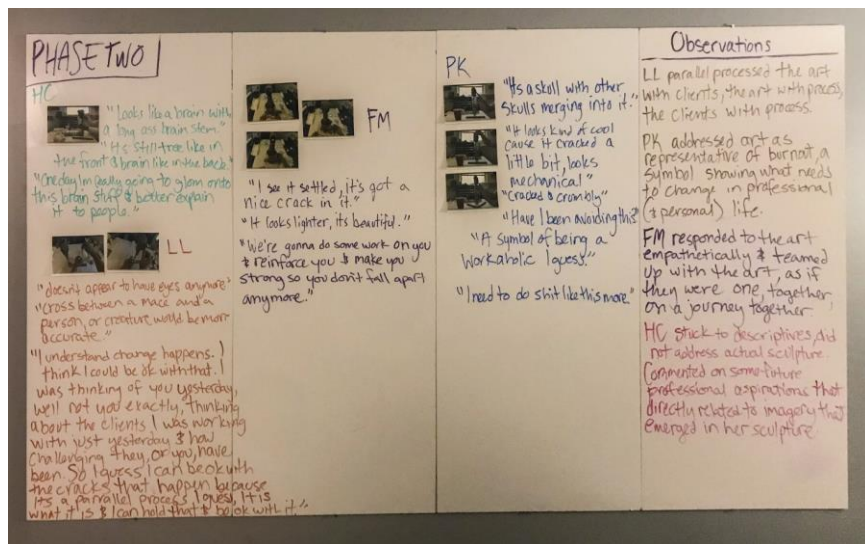 PHASE TWO
HC
"Looks like a brain with
a long ass brain stem."
"It's still tree like in
the front & brain like in the back."
"One day I'm really going to glom onto
this brain stuff & better explain
it to people."
LL
"doesn't appear to have eyes anymore"
"cross between a mace and a
person, or creature would be more
accurate."
"I understand change happens. I
think I could be ok with that. I
was thinking of you yesterday,
well not you exactly, thinking
about the clients I was working
with just yesterday & how
challenging they, or you, have
been. So I guess I can be ok with
the cracks that happen because
its a parrallel process I guess, It is
what it is & I can hold that & be ok with it."
FM
"I see it settled, it's got a
nice crack in it."
"It looks lighter, its beautiful."
"We're gonna do some work on you
& reinforce you & make you
strong so you don't fall apart
anymore."
PK
"Its a skull with other
skulls merging into it."
"It looks kind of cool
cause it cracked a
little bit, looks
mechanical"
"Cracked & crombly"
"Have I been avoiding this?"
"A symbol of being a
workaholic I guess."
"I need to do shit like this more"
Observations
LL parallel processed the art
with clients, the art with process,
the clients with process.
PK addressed art as
representative of burnout, a
symbol showing what needs
to change in professional
(& personal) life.
FM responded to the art
empathetically & teamed
up with the art, as if
they were one, together
on a journey together
HC stuck to descriptives, did
not address actual sculpture.
Commented on some future
professional aspirations that
directly related to imagery that
emerged in her sculpture